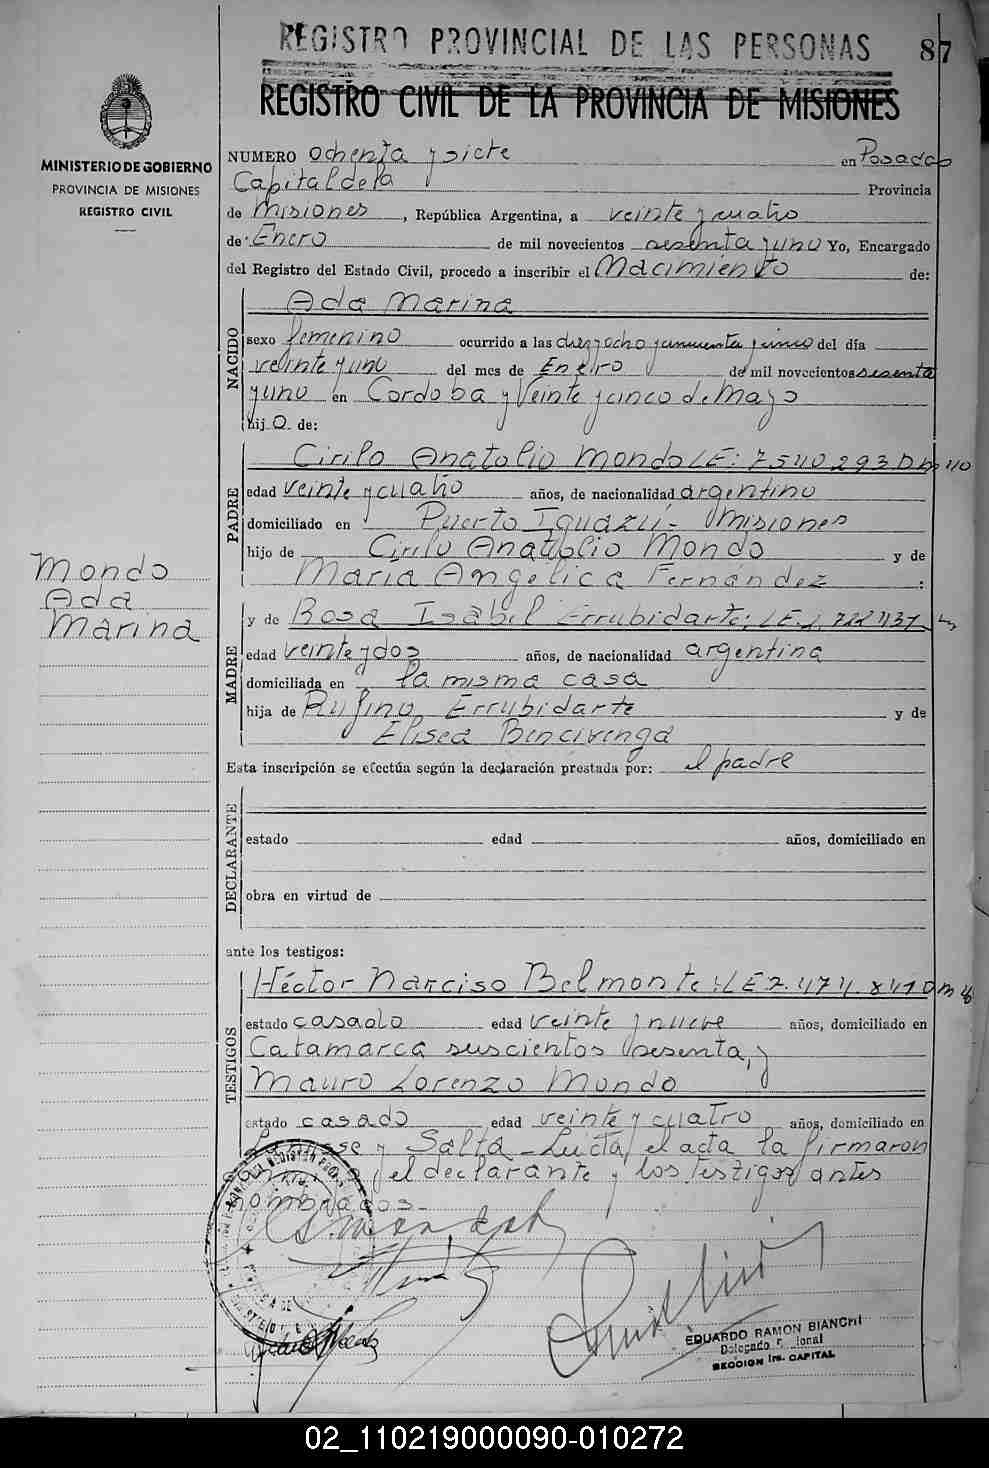 REGISTRO PROVINCIAL DE LAS PERSONAS
87
REGISTRO CIVIL DE LA PROVINCIA DE MISIONES
MINISTERIO DE GOBIERNO
PROVINCIA DE MISIONES
REGISTRO CIVIL
NUMERO ochenta y siete en Posadas
Capital de la Provincia
de Misiones, República Argentina, a veinte y cuatro
de Enero de mil novecientos sesenta y uno Yo, Encargado
del Registro del Estado Civil, procedo a inscribir el Nacimiento de:
NACIDO
Ada Marina
sexo femenino ocurrido a las diez y ocho y cincuenta y cinco del día
veinte y uno del mes de Enero de mil novecientos sesenta
y uno en Cordoba y Veinte y cinco de Mayo
hij a de:
PADRE
Cirilo Anatolio Mondo LE: 7540293 D M 40
edad veinte y cuatro años, de nacionalidad argentino
domiciliado en Puerto Iguazú - Misiones
hijo de Cirilo Anatolio Mondo y de
María Angelica Fernández :
Mondo
Ada
Marina
MADRE
y de Rosa Isabel Errubidarte; LE:
edad veinte y dos años, de nacionalidad argentina
domiciliada en la misma casa
hija de Rufino Errubidarte y de
Elisea Bencivenga
Esta inscripción se efectúa según la declaración prestada por: el padre
DECLARANTE
estado edad años, domiciliado en
obra en virtud de
ante los testigos:
TESTIGOS
Héctor Narciso Belmonte: LE 7.474.841 D M
estado casado edad veinte y nueve años, domiciliado en
Catamarca suscientos sesenta, y
Mauro Lorenzo Mondo
estado casado edad veinte y cuatro años, domiciliado en
y Salta - Leicta el acta la firmaron
el declarante y los testigos antes
nombrados -
EDUARDO RAMON BIANCHI
Delegado
SECCION 1ra. CAPITAL
02_110219000090-010272